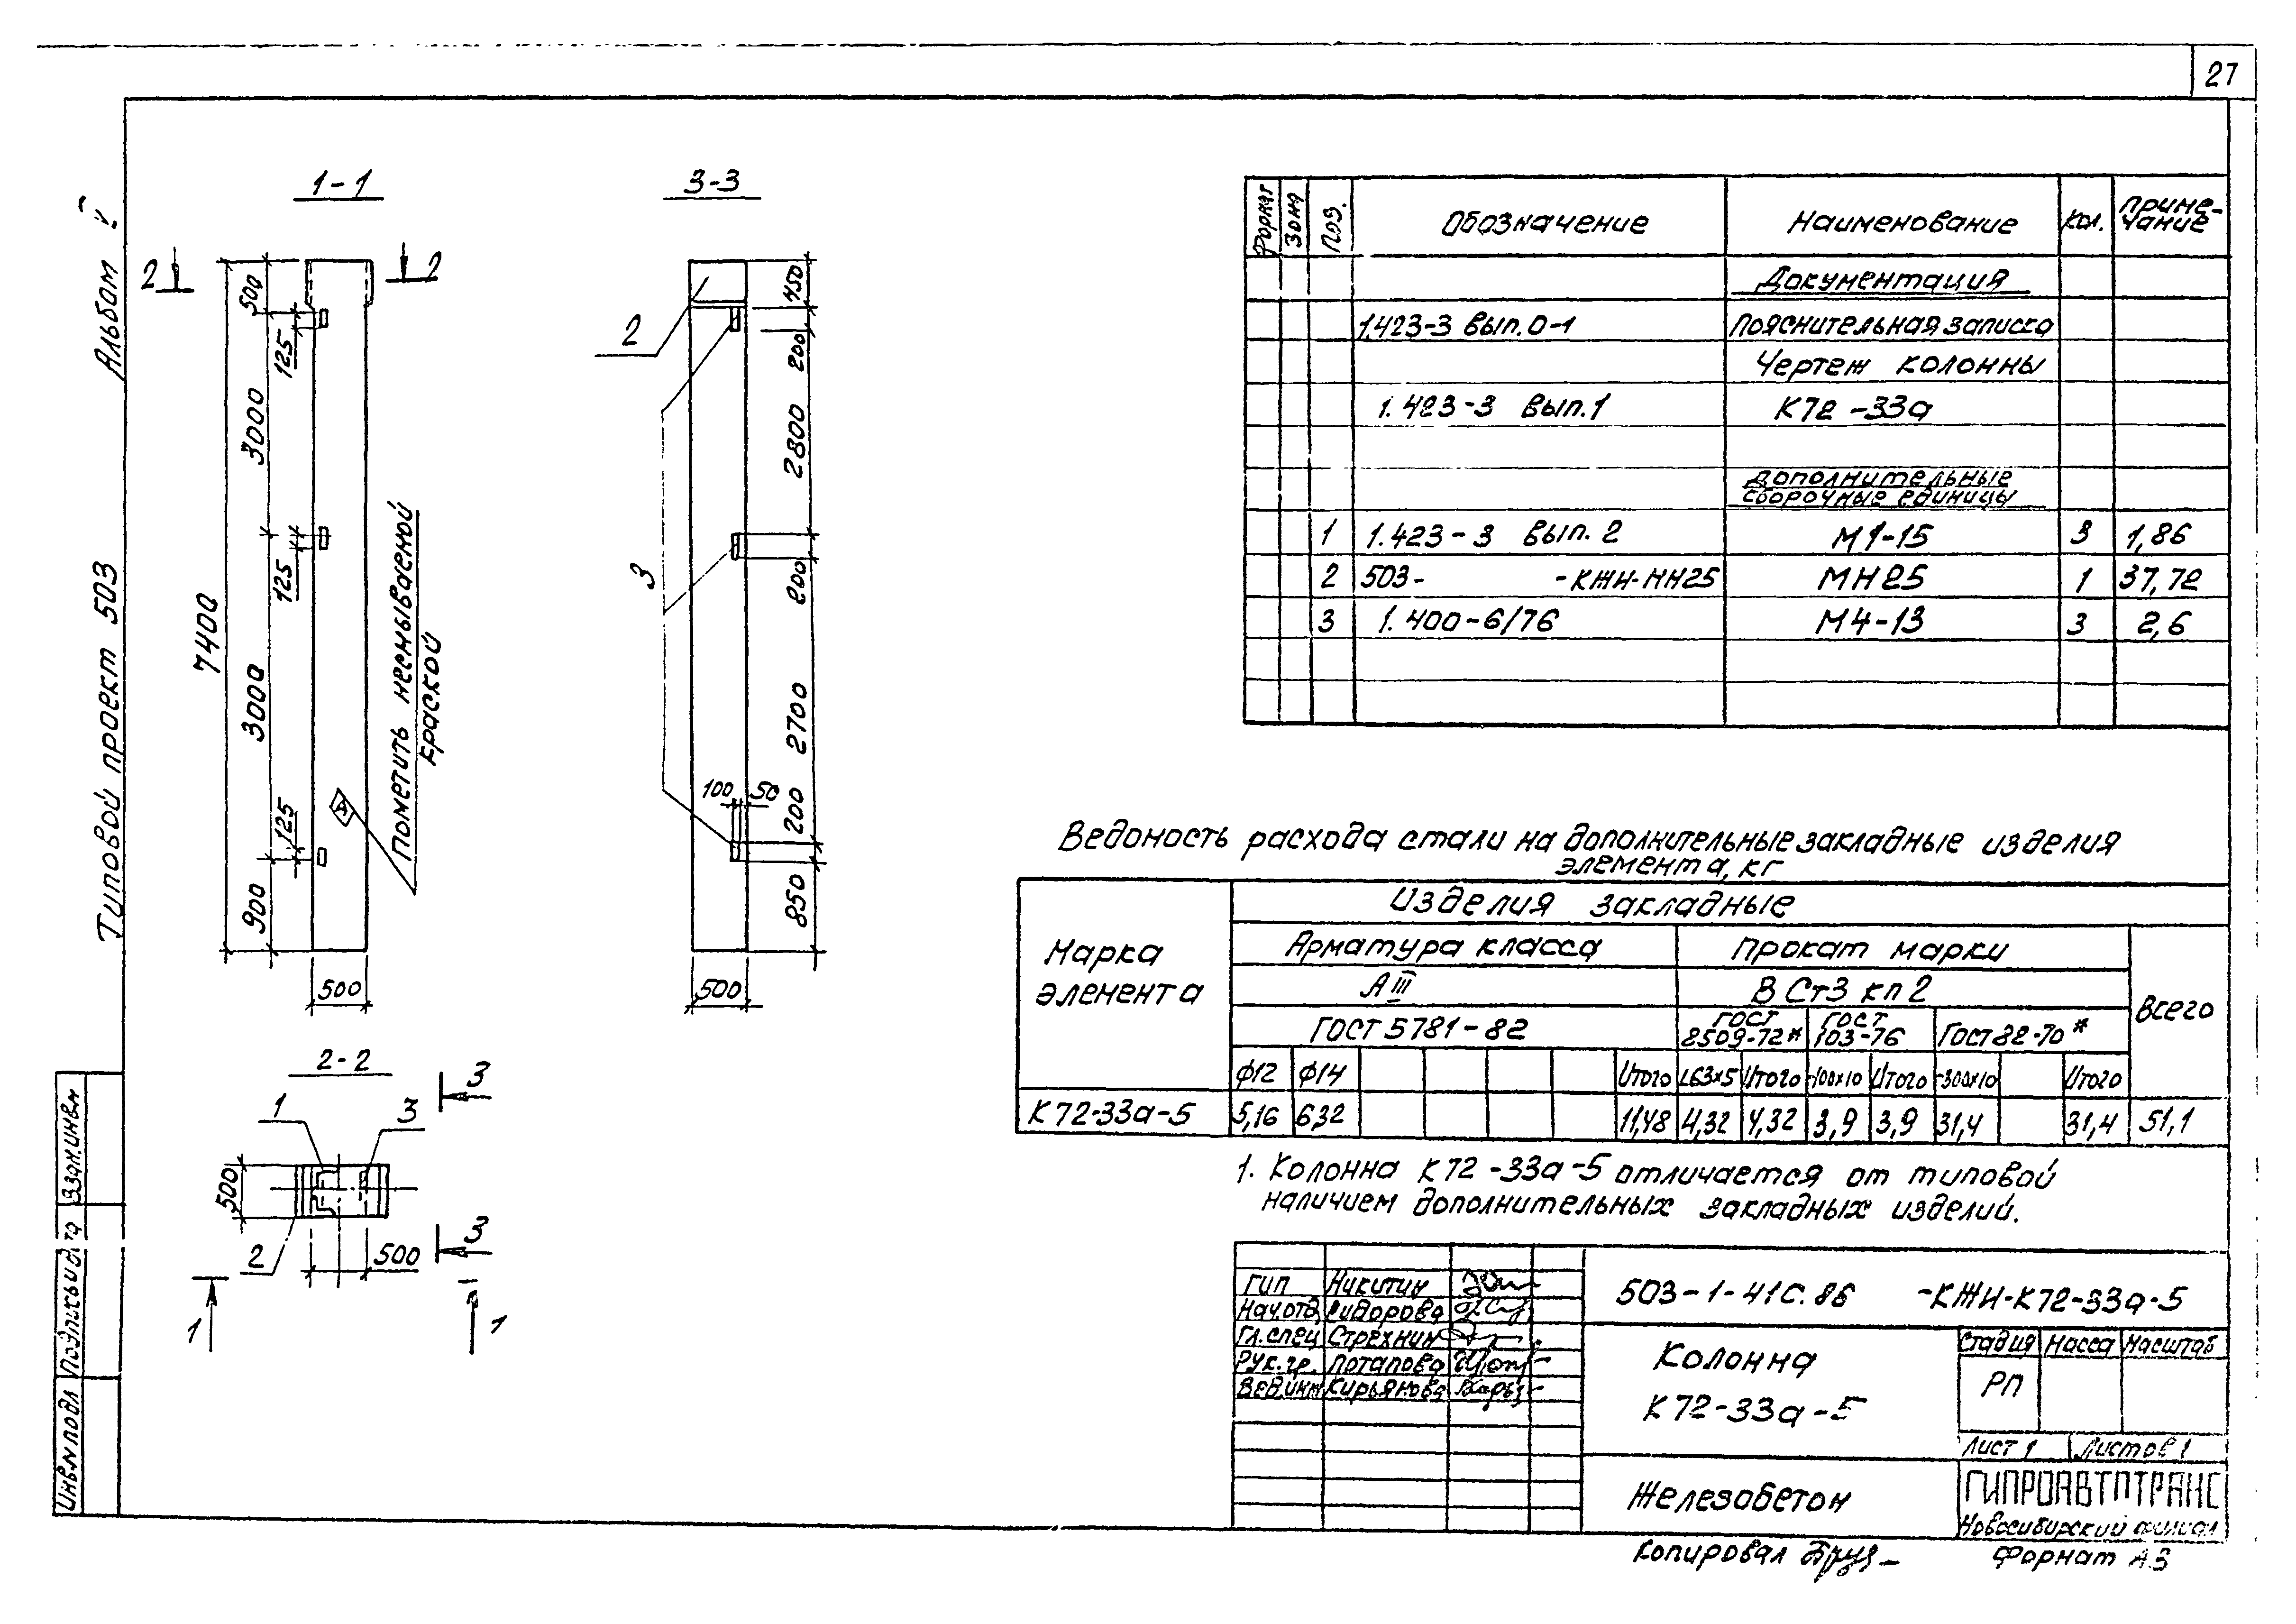 27
Типовой проект 503 Альбом V
1-1
2
2
7400
500
125
3000
125
3000
125
900
500
Пометить несмываемой
краской
А
3-3
2
3
450
200
2800
200
2700
200
850
100
50
500
2-2
1
3
3
500
2
500
3
1
1
Формат
Зона
Поз.
Обозначение
Наименование
Кол.
Приме-
чание
Документация
1.423-3 вып. 0-1 Пояснительная записка
Чертеж колонны
1.423-3 вып. 1 К72-33а
Дополнительные
сборочные единицы
1 1.423-3 вып. 2 М1-15 3 1,86
2 503- -КЖИ-МН25 МН25 1 37,72
3 1.400-6/76 М4-13 3 2,6
Ведомость расхода стали на дополнительные закладные изделия
элемента, кг
Марка
элемента
Изделия закладные
Арматура класса
Прокат марки
Всего
АIII
ВСт3кп2
ГОСТ 5781-82
ГОСТ
8509-72*
ГОСТ
103-76
ГОСТ 82-70*
Ф12 Ф14 Итого L63x5 Итого -100x10 Итого -300x10 Итого
К72-33а-5 5,16 6,32 11,48 4,32 4,32 3,9 3,9 31,4 31,4 51,1
1. Колонна К72-33а-5 отличается от типовой
наличием дополнительных закладных изделий.
ГИП Никитин
Нач.отд. Сидорова
Гл.спец Стрехнин
Рук.гр. Потапова
Вед.инж Кирьянова
503-1-41С.86 -КЖИ-К72-33а-5
Колонна
К72-33а-5
Стадия Масса Масштаб
РП
Лист 1 Листов 1
Железобетон
ГИПРОАВТОТРАНС
Новосибирский филиал
Копировал
Формат А3
Взам.инв.№
Подпись и дата
Инв.№ подл